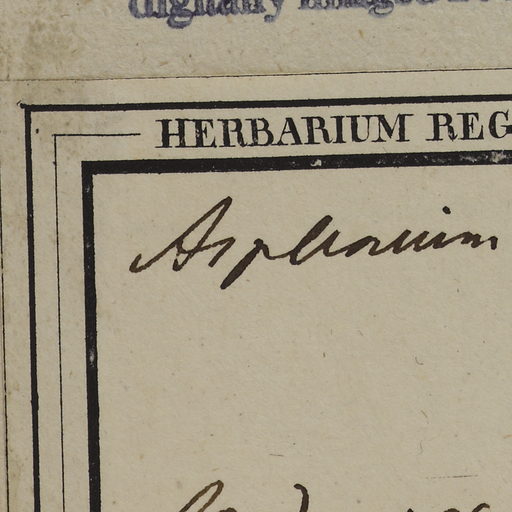 digitally imaged
HERBARIUM REG
Asplenium